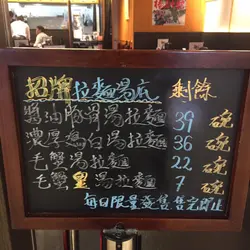 招牌拉麵湯底 剩餘
醬油豚骨湯拉麵 39 碗
濃厚雞白湯拉麵 36 碗
毛蟹湯拉麵 22 碗
毛蟹皇湯拉麵 7 碗
每日限量發售 售完即止